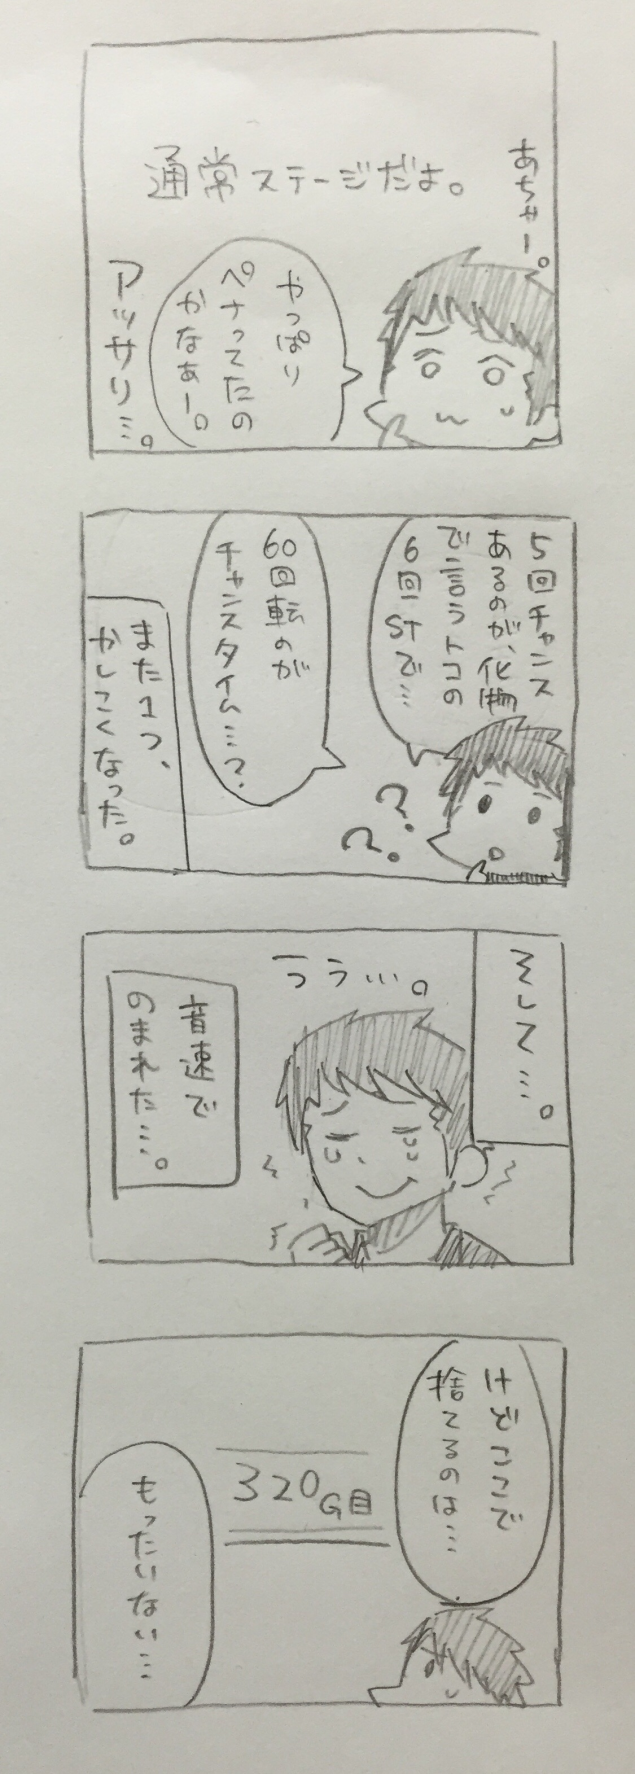 あちゃー。
通常ステージだよ。
やっぱり
ペナってたの
かなぁー。
アッサリ…。
5回チャンス
あるのが、化物
で言うトコの
6回STで…
60回転のが
チャンスタイム…?
??
また1つ、
かしこくなった。
そして…。
うう…。
音速で
のまれた…。
けどここで
捨てるのは…
320G目
もったいない…